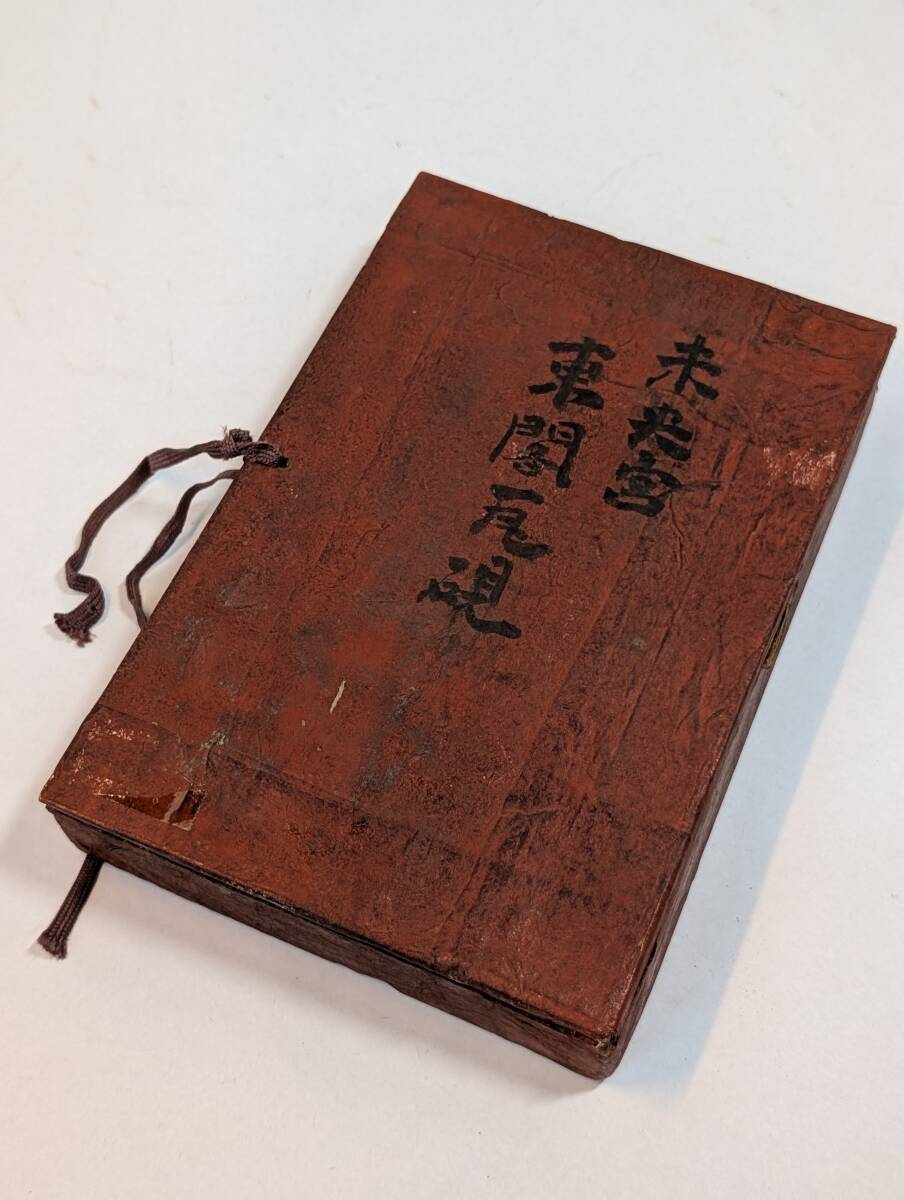 未央宮
東閣瓦硯